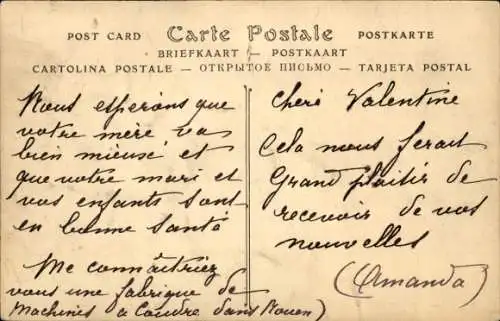 POST CARD Carte Postale POSTKARTE
BRIEFKAART — POSTKAART
CARTOLINA POSTALE — ОТКРЫТОЕ ПИСЬМО — TARJETA POSTAL
Nous esperons que
votre mère va
bien mieusé et
que votre mari et
vos enfants sont
en bonne santé
Me connâitriez
vous une fabrique de
Machines a Coudre dans Rouen)
Cheri Valentine
Cela nous ferait
Grand plaisir de
recevoir de vos
nouvelles
(Amanda)